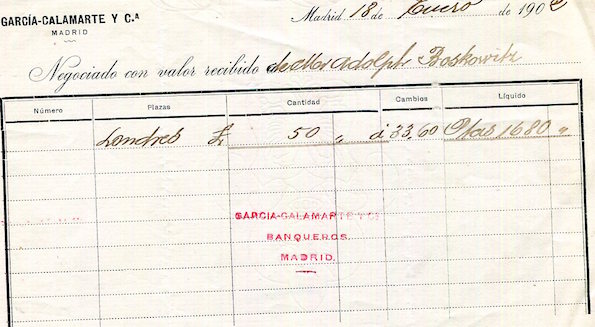 GARCÍA-CALAMARTE Y C.ª
MADRID
Madrid 18 de Enero de 1902
Negociado con valor recibido de Mr Adolph Boskowitz
Número Plazas Cantidad Cambios Líquido
Londres £ 50 " á 33,60 Ptas 1680 "
GARCIA-CALAMARTE Y Cª
BANQUEROS
MADRID.